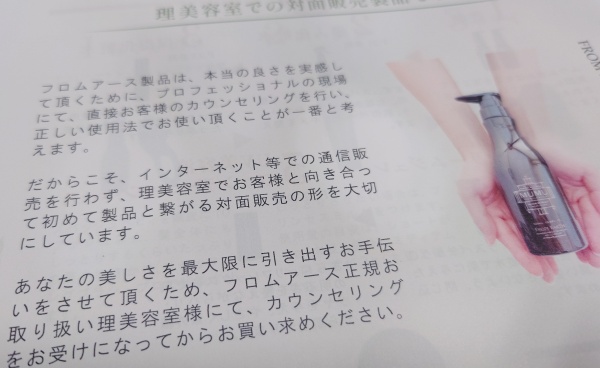 理美容室での対面販売製品
フロムアース製品は、本当の良さを実感し
て頂くために、プロフェッショナルの現場
にて、直接お客様のカウンセリングを行い、
正しい使用法でお使い頂くことが一番と考
えます。
だからこそ、インターネット等での通信販
売を行わず、理美容室でお客様と向き合っ
て初めて製品と繋がる対面販売の形を大切
にしています。
あなたの美しさを最大限に引き出すお手伝
いをさせて頂くため、フロムアース正規お
取り扱い理美容室様にて、カウンセリング
をお受けになってからお買い求めください。
FROM